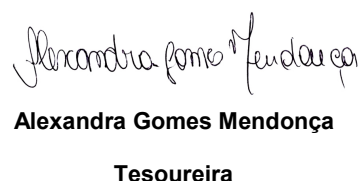 Alexandra Gomes Mendonça
Alexandra Gomes Mendonça
Tesoureira